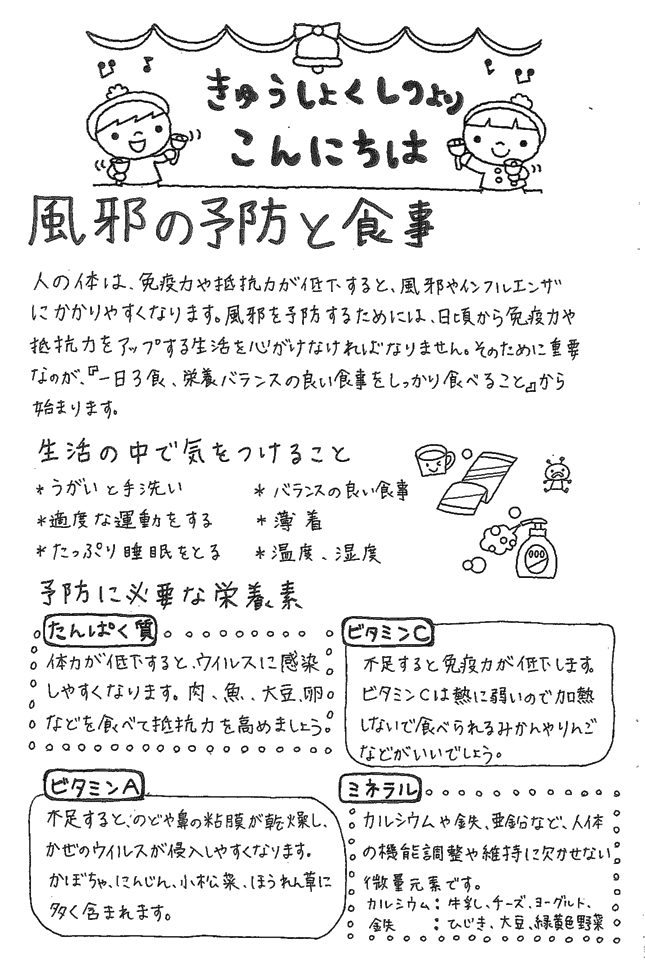 きゅうしょくしつより
こんにちは
風邪の予防と食事
人の体は、免疫力や抵抗力が低下すると、風邪やインフルエンザ
にかかりやすくなります。風邪を予防するためには、日頃から免疫力や
抵抗力をアップする生活を心がけなければなりません。そのために重要
なのが、『一日3食、栄養バランスの良い食事をしっかり食べること』から
始まります。
生活の中で気をつけること
*うがいと手洗い
*バランスの良い食事
*適度な運動をする
*薄着
*たっぷり睡眠をとる
*温度、湿度
予防に必要な栄養素
たんぱく質
体力が低下すると、ウイルスに感染
しやすくなります。肉、魚、大豆、卵
などを食べて抵抗力を高めましょう。
ビタミンC
不足すると免疫力が低下します。
ビタミンCは熱に弱いので加熱
しないで食べられるみかんやりんご
などがいいでしょう。
ビタミンA
不足すると、のどや鼻の粘膜が乾燥し、
かぜのウイルスが侵入しやすくなります。
かぼちゃ、にんじん、小松菜、ほうれん草に
多く含まれます。
ミネラル
カルシウムや鉄、亜鉛など、人体
の機能調整や維持に欠かせない
微量元素です。
カルシウム:牛乳、チーズ、ヨーグルト、
鉄 :ひじき、大豆、緑黄色野菜